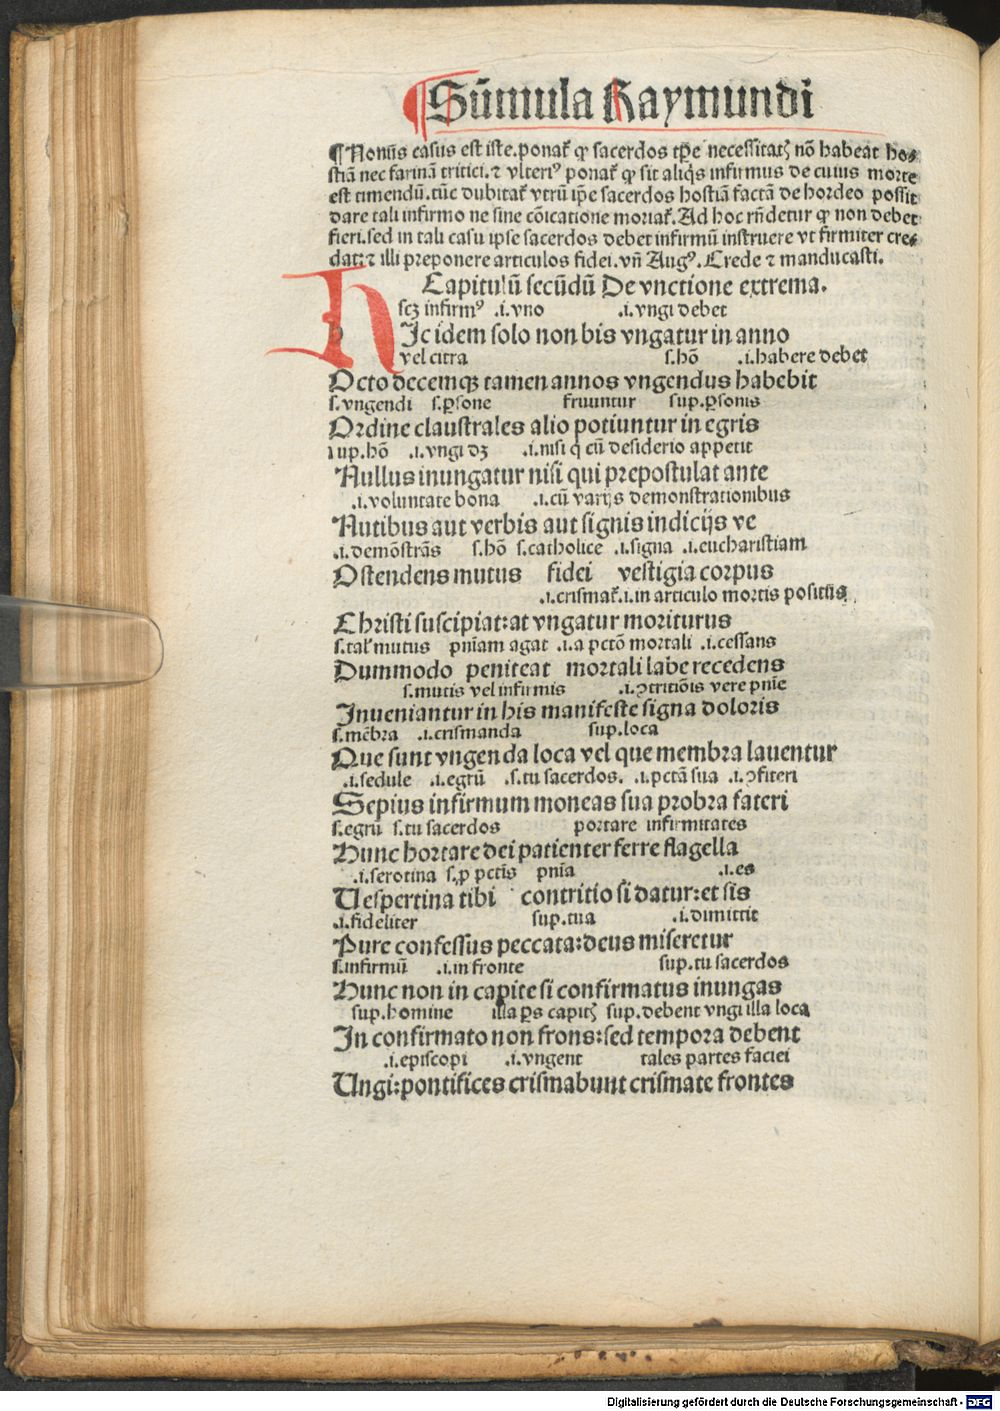 ¶ Sūmula Raymundi
¶ Nonus casus est iste. ponat᷑ ꝙ sacerdos tꝑe necessitatꝭ nō habeat hos⸗
stiā nec farinā tritici. ⁊ vlteri᷒ ponat᷑ ꝙ sit aliq̄s infirmus de cuius morte
est timendū. tūc dubitat᷑ vtrū ip̄e sacerdos hostiā factā de hordeo possit
dare tali infirmo ne sine cōicatione moriat᷑. Ad hoc rn̄detur ꝙ non debet
fieri. sed in tali casu ipse sacerdos debet infirmū instruere vt firmiter cre⸗
dat: ⁊ illi preponere articulos fidei. vn̄ Aug᷒. Crede ⁊ manducasti.
Capitulū secūdū De vnctione extrema.
scꝫ infirm᷒ .i. vno .i. vngi debet
HIc idem solo non bis vngatur in anno
vel citra s. hō .i. habere debet
Octo decemqꝫ tamen annos vngendus habebit
s. vngendi s. ꝑsone fruuntur sup. ꝑsonis
Ordine claustrales alio potiuntur in egris
sup. hō .i. vngi dꝫ .i. nisi q̇ cū desiderio appetit
Nullus inungatur nisi qui prepostulat ante
.i. voluntate bona .i. cū varijs demonstrationibus
Nutibus aut verbis aut signis indicijs ve
.i. demōstrās s. hō s. catholice .i. signa .i. eucharistiam
Ostendens mutus fidei vestigia corpus
.i. crismat᷑ .i. in articulo mortis positus
Christi suscipiat: at vngatur moriturus
s. tal᷑ mutus pn̄iam agat .i. a pctō mortali .i. cessans
Dummodo peniteat mortali labe recedens
s. mutis vel infirmis .i. ꝯtritiōis vere pn̄ie
Inueniantur in his manifeste signa doloris
s. mēbra .i. crismanda sup. loca
Que sunt vngenda loca vel que membra lauentur
.i. sedule .i. egrū .s. tu sacerdos. .i. pctā sua .i. ꝯfiteri
Sepius infirmum moneas sua probra fateri
s. egrū s. tu sacerdos portare infirmitates
Hunc hortare dei patienter ferre flagella
.i. serotina s. ꝓ pctīs pn̄ia .i. es
Uespertina tibi contritio si datur: et sis
.i. fideliter sup. tua .i. dimittit
Pure confessus peccata: deus miseretur
s. infirmū .i. in fronte sup. tu sacerdos
Hunc non in capite si confirmatus inungas
sup. homine illa ꝑs capitꝭ sup. debent vngi illa loca
In confirmato non frons: sed tempora debent
.i. episcopi .i. vngent tales partes faciei
Ungi: pontifices crismabunt crismate frontes
Digitalisierung gefördert durch die Deutsche Forschungsgemeinschaft - DFG